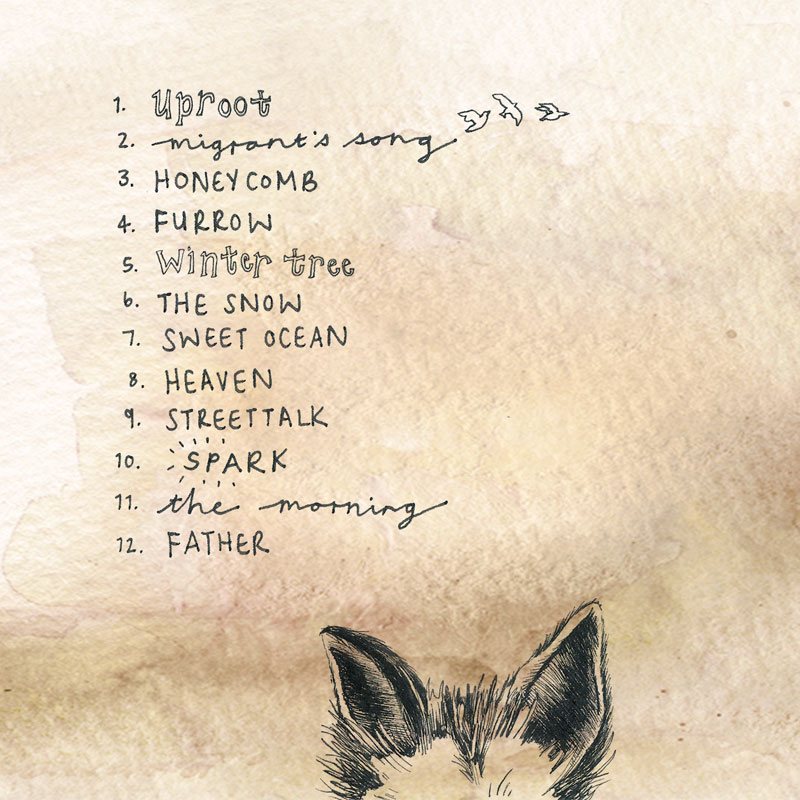 1. Uproot
2. migrant's song
3. HONEYCOMB
4. FURROW
5. Winter tree
6. THE SNOW
7. SWEET OCEAN
8. HEAVEN
9. STREETTALK
10. SPARK
11. the morning
12. FATHER